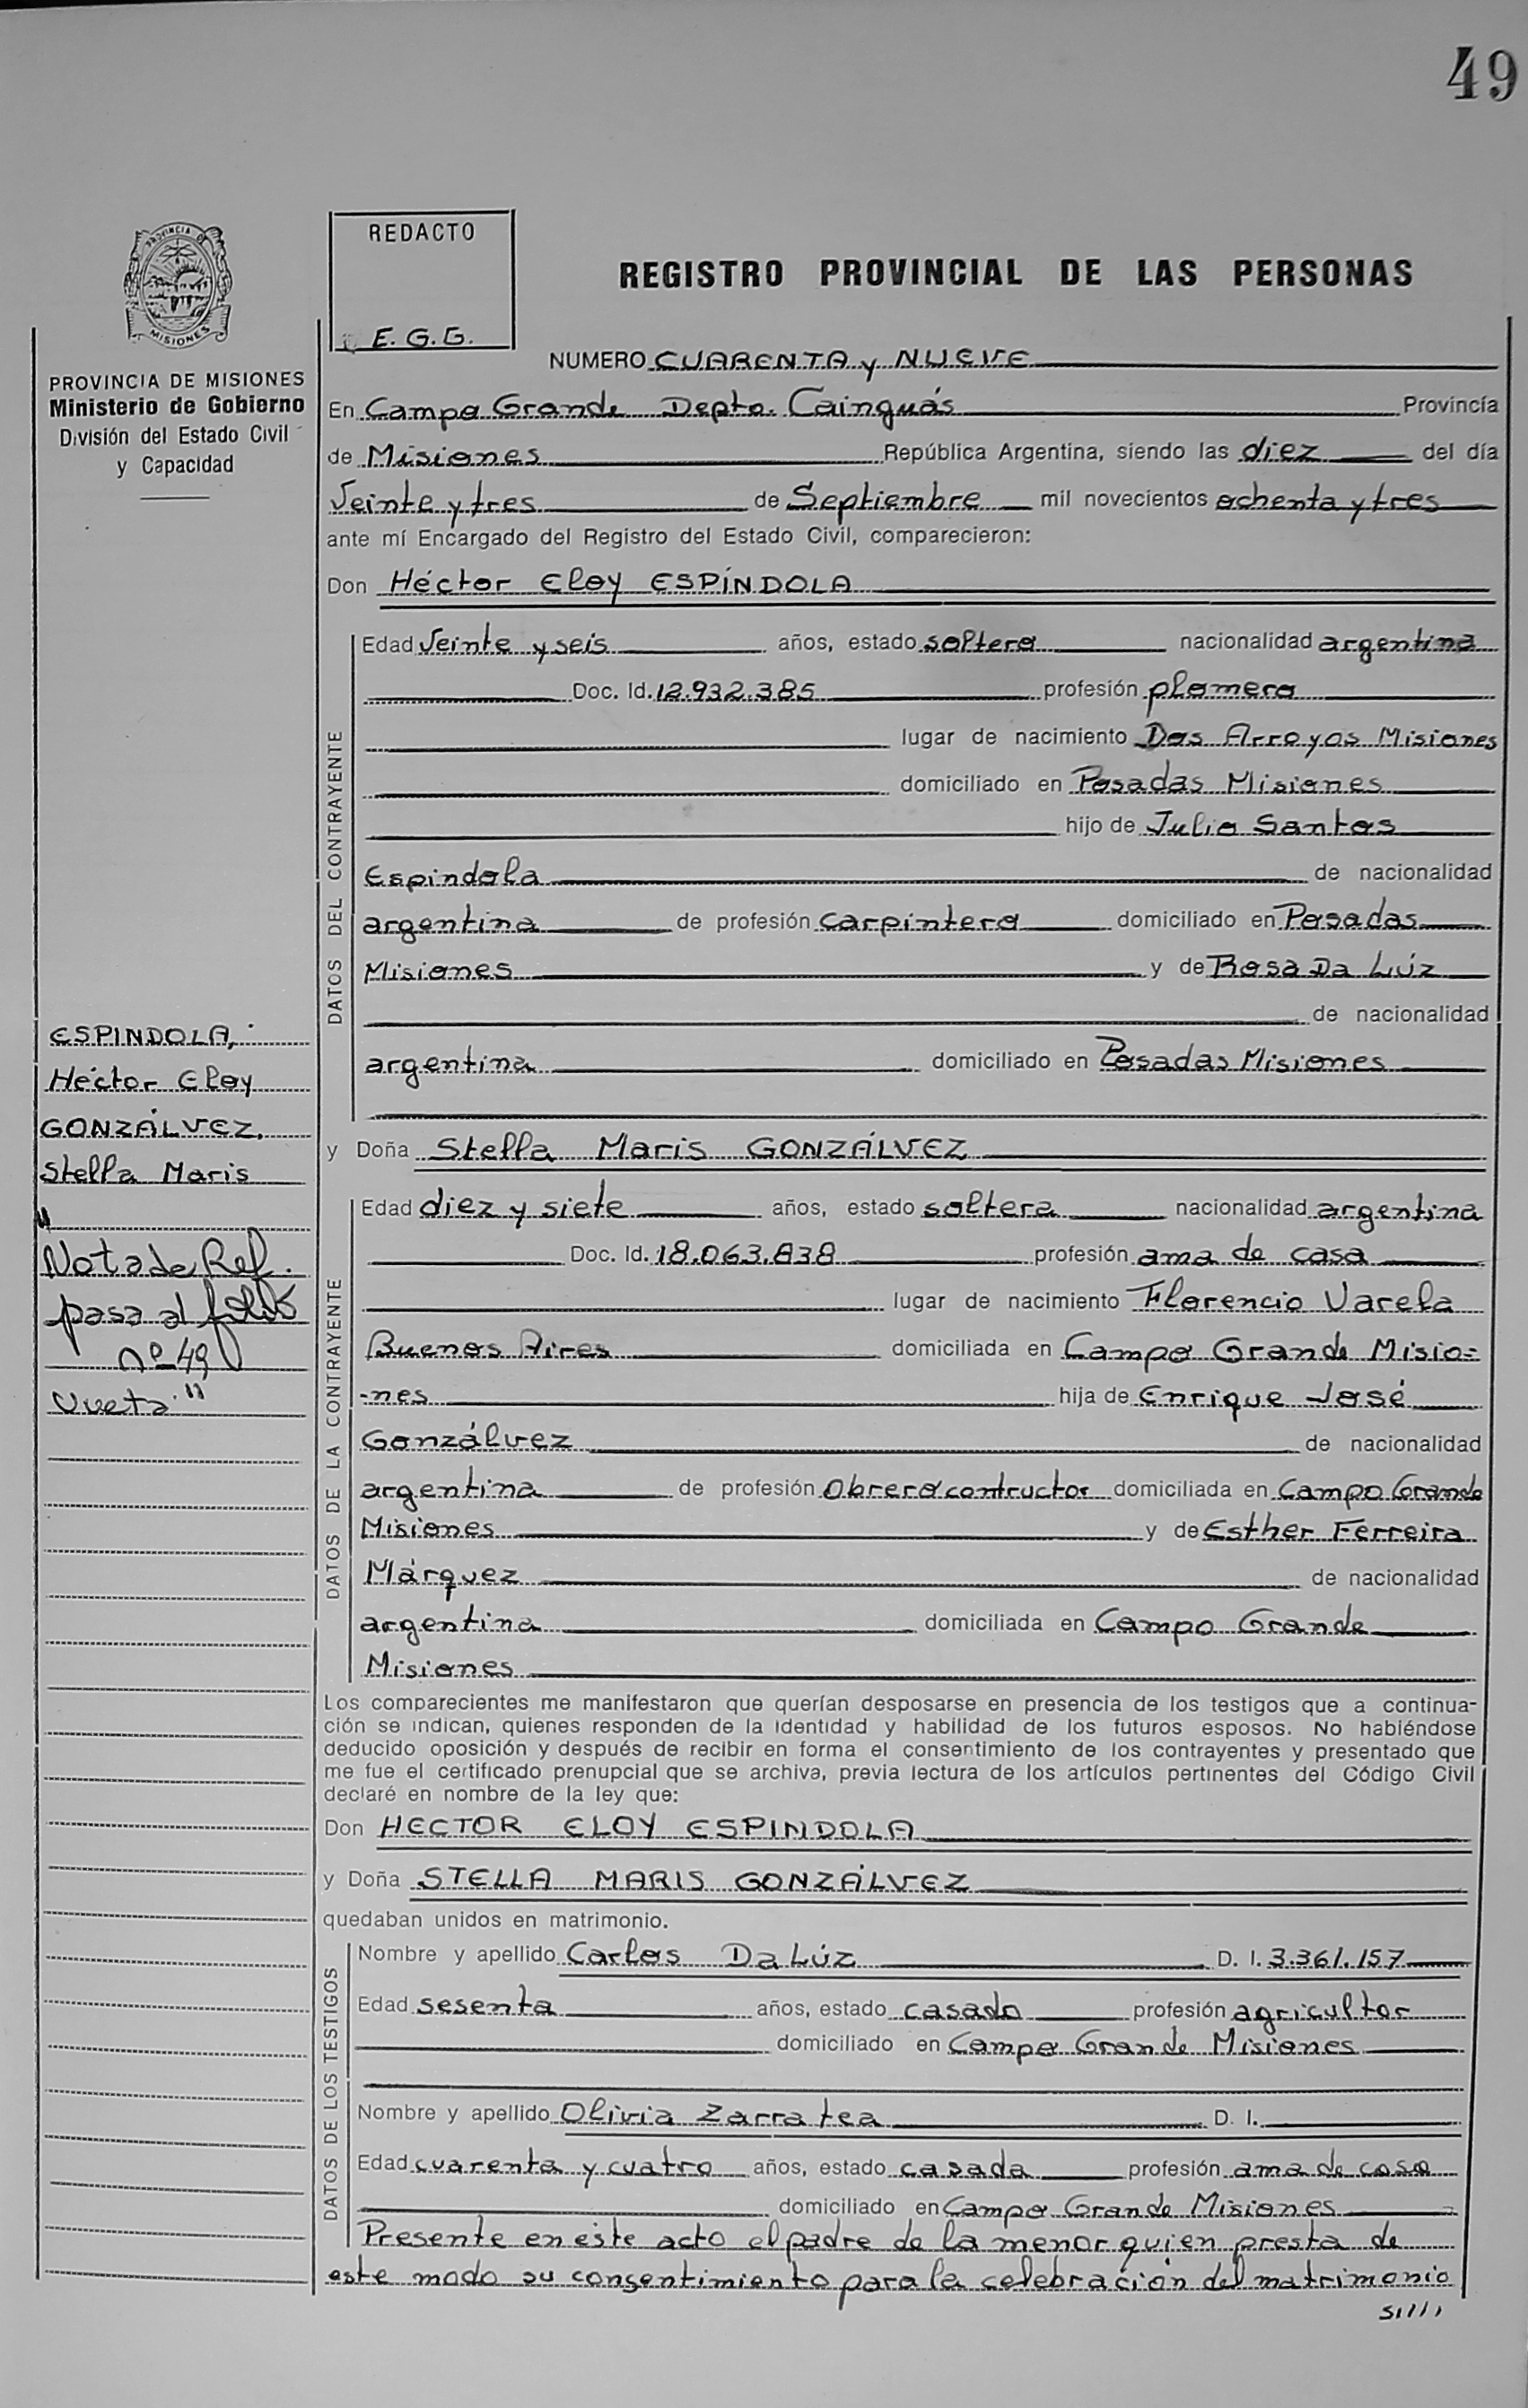 49
PROVINCIA DE
MISIONES
PROVINCIA DE MISIONES
Ministerio de Gobierno
División del Estado Civil
y Capacidad
REDACTO
E. G. G.
REGISTRO PROVINCIAL DE LAS PERSONAS
NUMERO CUARENTA y NUEVE
En Campo Grande Depto. Cainguás Provincia
de Misiones República Argentina, siendo las diez del día
Veinte y tres de Septiembre mil novecientos ochenta y tres
ante mí Encargado del Registro del Estado Civil, comparecieron:
Don Héctor Eloy ESPÍNDOLA
DATOS DEL CONTRAYENTE
Edad Veinte y seis años, estado soltero nacionalidad argentina
Doc. Id. 12.932.385 profesión plomero
lugar de nacimiento Dos Arroyos Misiones
domiciliado en Posadas Misiones
hijo de Julio Santos
Espindola de nacionalidad
argentina de profesión carpintero domiciliado en Posadas
Misiones y de Rosa Da Lúz
de nacionalidad
argentina domiciliado en Posadas Misiones
ESPINDOLA,
Héctor Eloy
GONZÁLVEZ,
Stella Maris
"
Nota de Ref.
pasa al folio
nº 49
vuelta"
y Doña Stella Maris GONZÁLVEZ
DATOS DE LA CONTRAYENTE
Edad diez y siete años, estado soltera nacionalidad argentina
Doc. Id. 18.063.838 profesión ama de casa
lugar de nacimiento Florencio Varela
Buenos Aires domiciliada en Campo Grande Misio=
-nes hija de Enrique José
Gonzálvez de nacionalidad
argentina de profesión Obrero contructor domiciliada en Campo Grande
Misiones y de Esther Ferreira
Márquez de nacionalidad
argentina domiciliada en Campo Grande
Misiones
Los comparecientes me manifestaron que querían desposarse en presencia de los testigos que a continua-
ción se indican, quienes responden de la identidad y habilidad de los futuros esposos. No habiéndose
deducido oposición y después de recibir en forma el consentimiento de los contrayentes y presentado que
me fue el certificado prenupcial que se archiva, previa lectura de los artículos pertinentes del Código Civil
declaré en nombre de la ley que:
Don HECTOR ELOY ESPINDOLA
y Doña STELLA MARIS GONZÁLVEZ
quedaban unidos en matrimonio.
DATOS DE LOS TESTIGOS
Nombre y apellido Carlos Da Lúz D. I. 3.361.157
Edad sesenta años, estado casado profesión agricultor
domiciliado en Campo Grande Misiones
Nombre y apellido Olivia Zarratea D. I.
Edad cuarenta y cuatro años, estado casada profesión ama de casa
domiciliado en Campo Grande Misiones
Presente en éste acto el padre de la menor quien presta de
este modo su consentimiento para la celebración del matrimonio